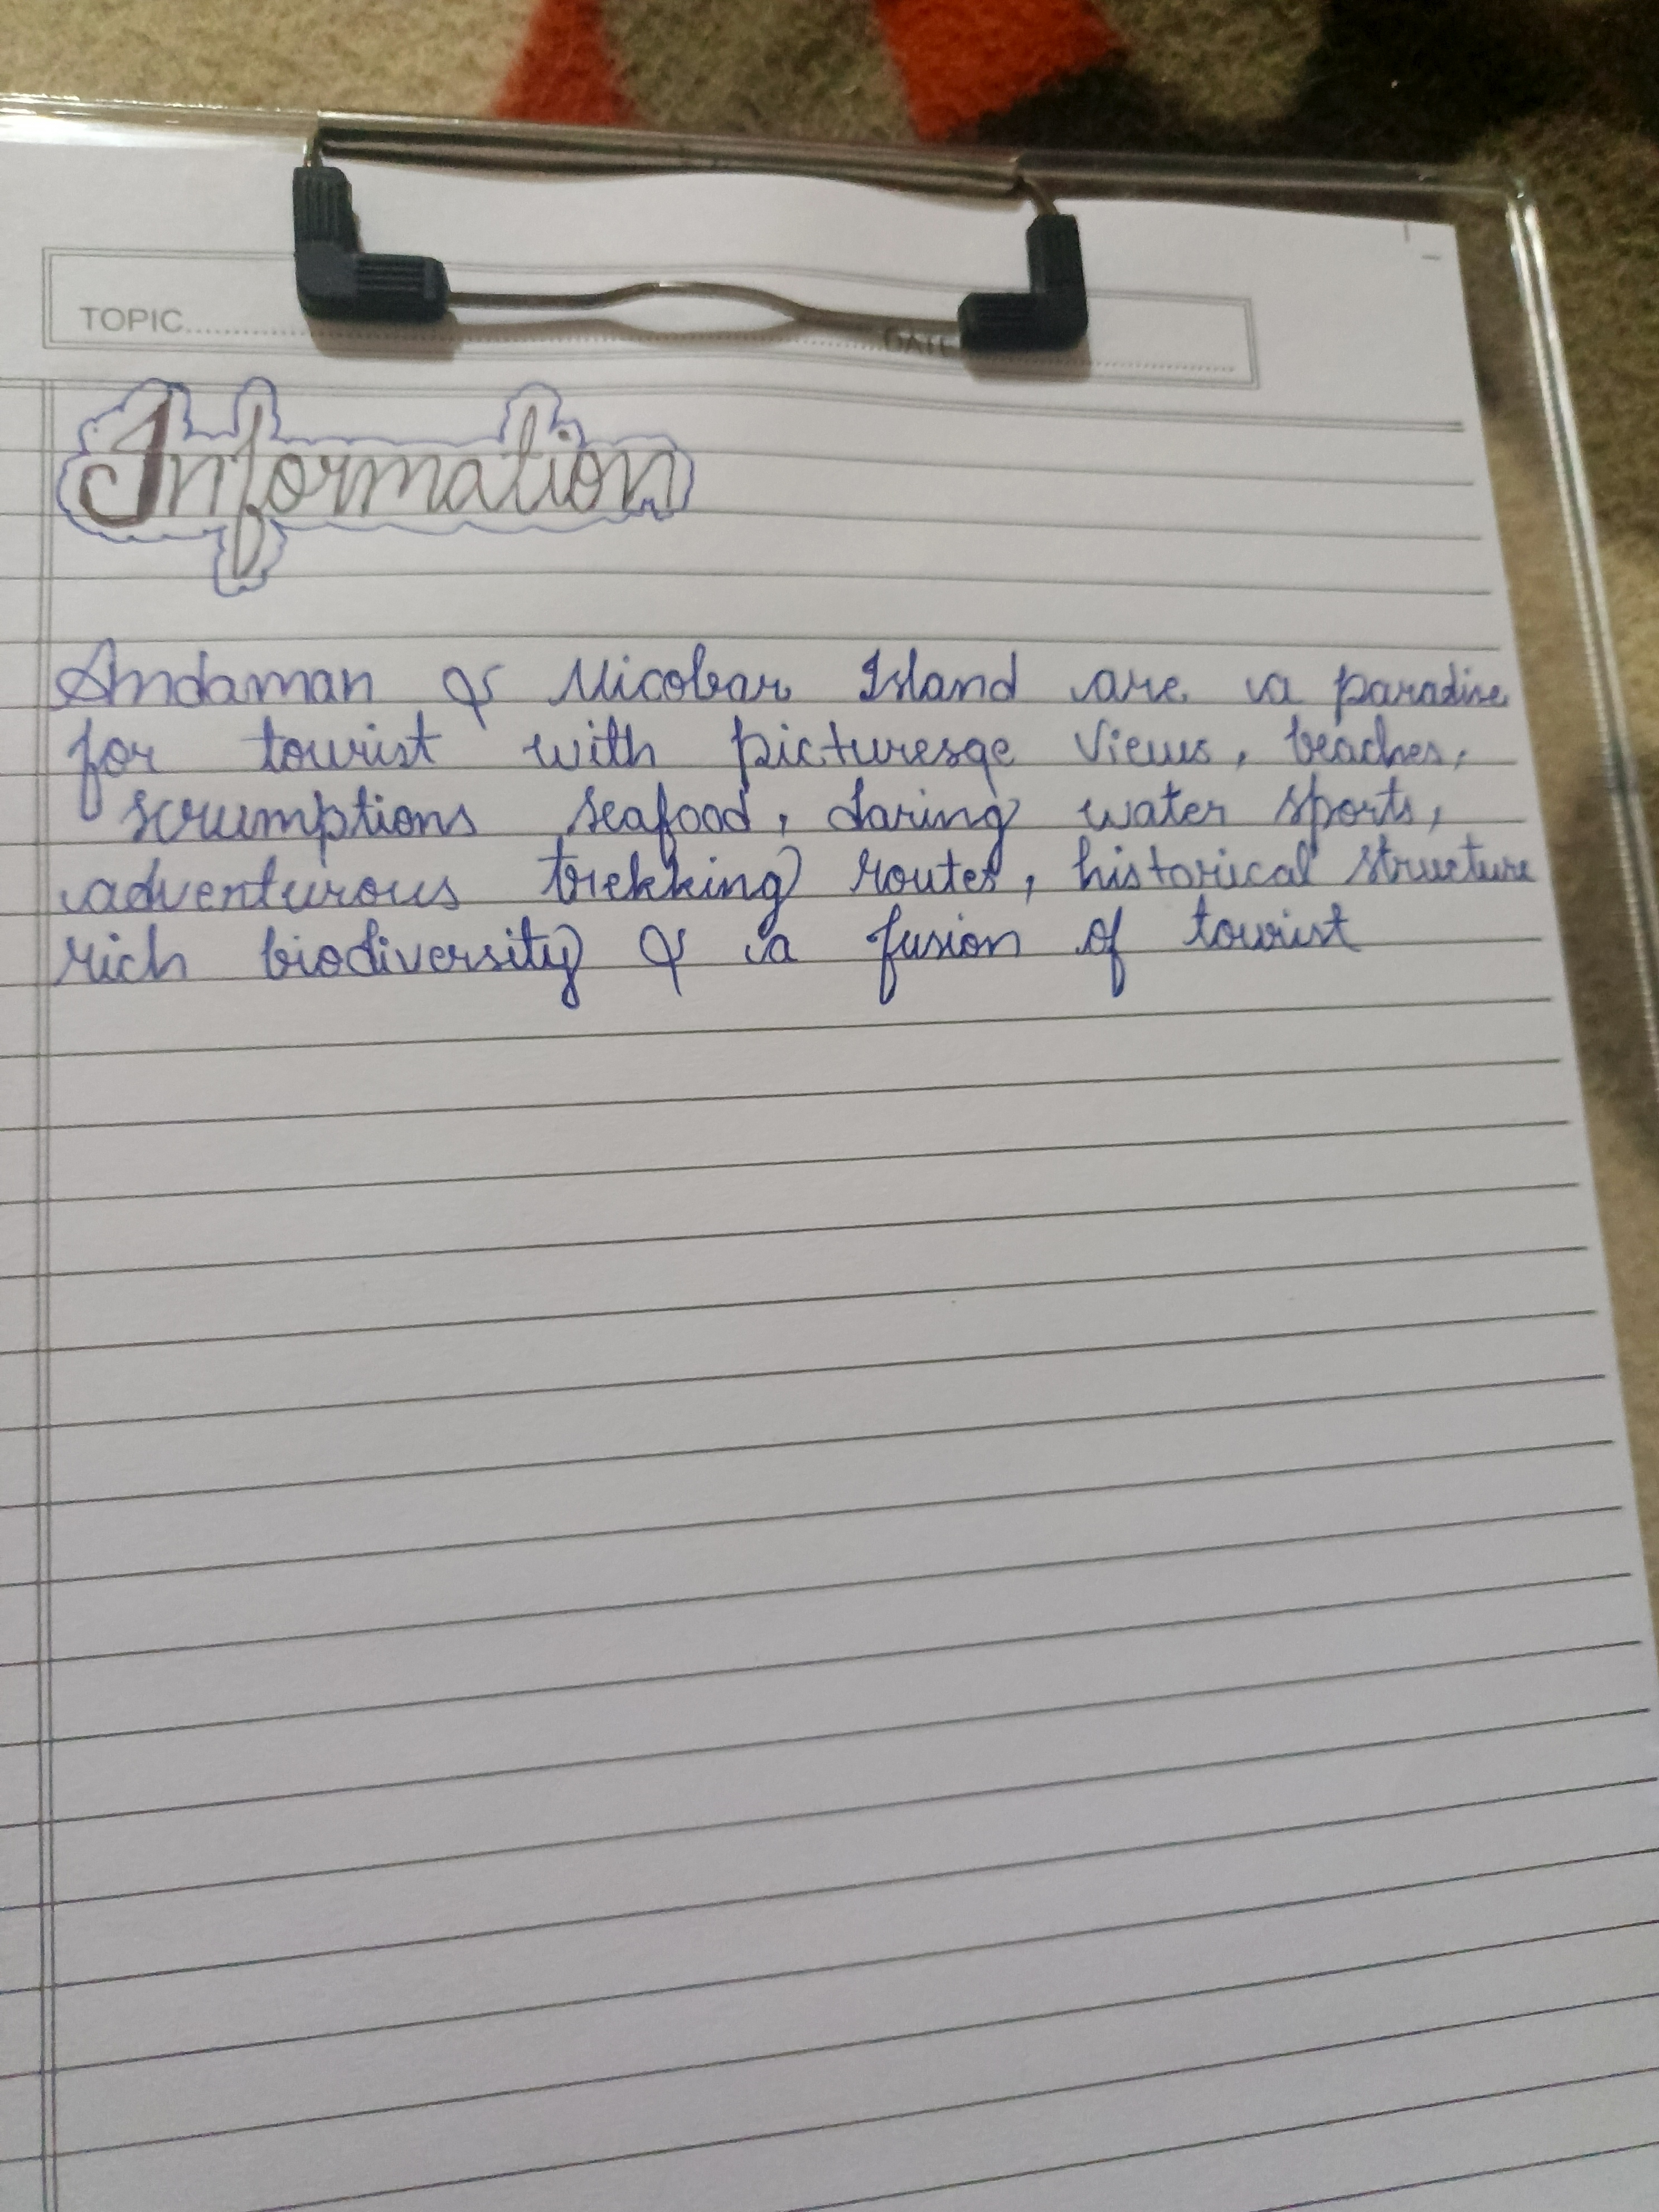 TOPIC
DATE
Information
Andaman & Nicobar Island are a paradise
for tourist with picturesqe views, beaches,
scrumptions seafood, daring water sports,
adventurous trekking routes, historical structure
rich biodiversity & a fusion of tourist